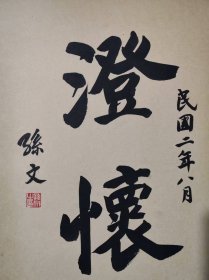 民國二年八月
澄懷
孫文